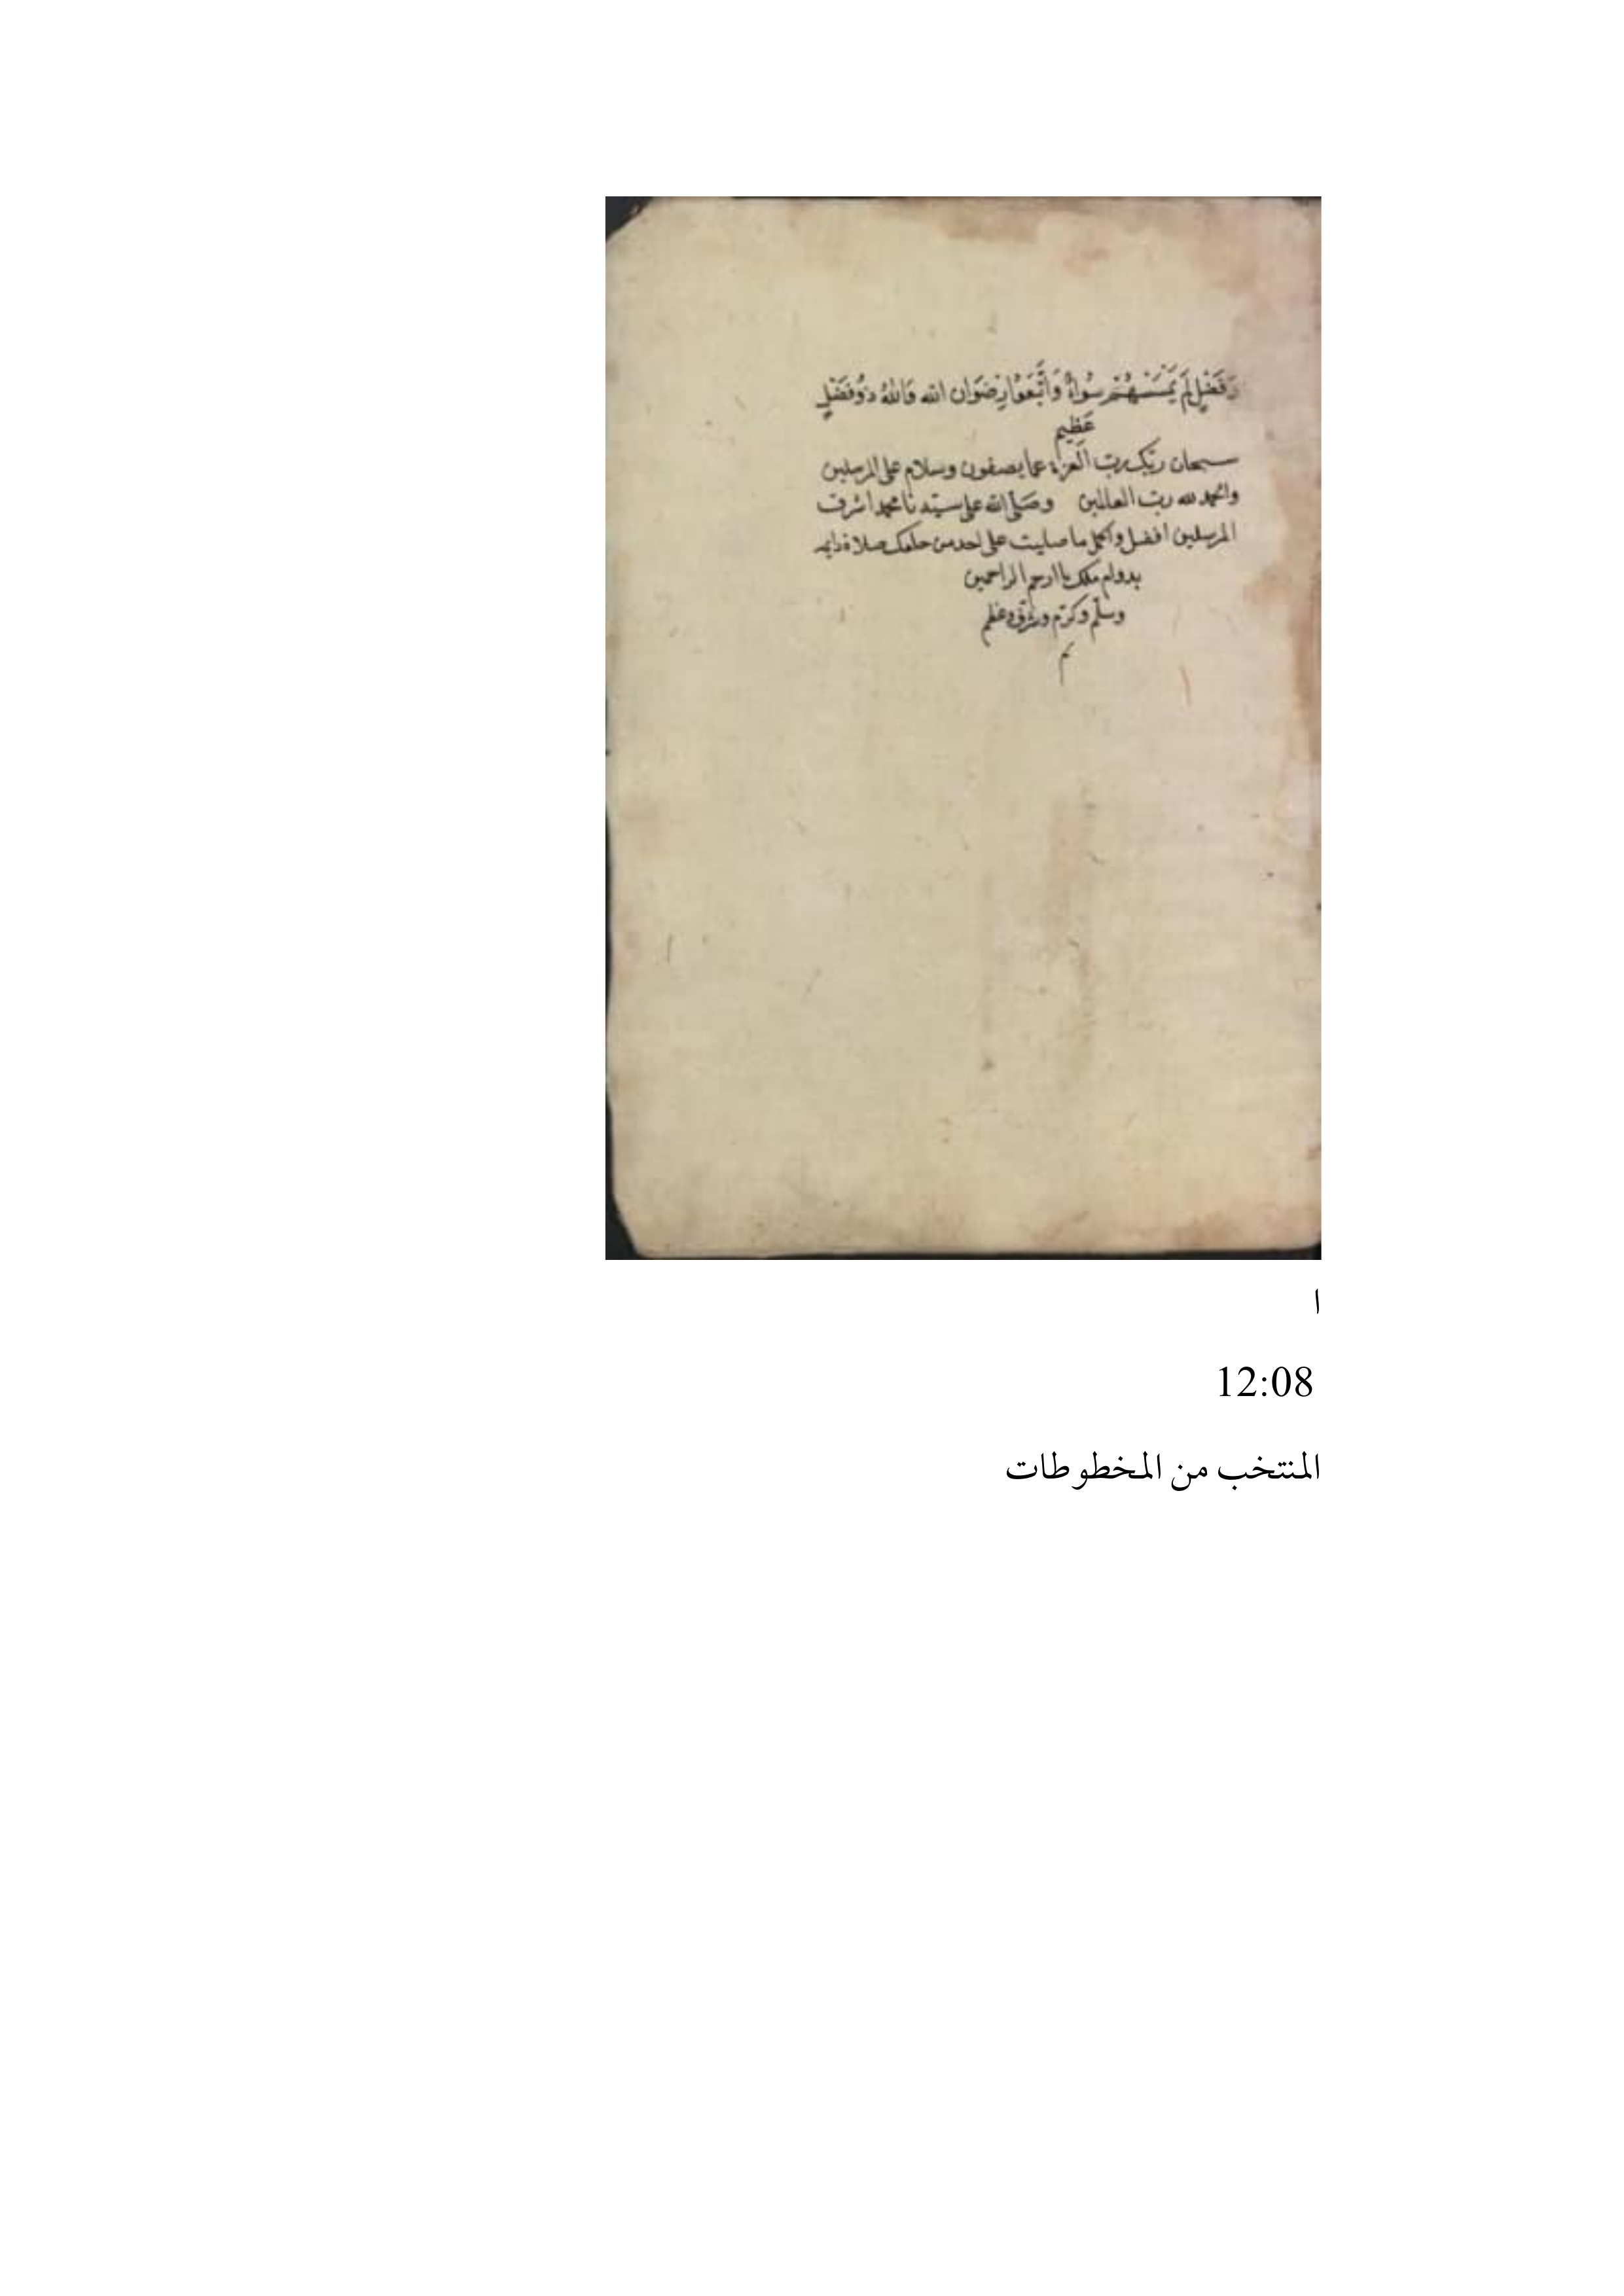 وَفَضْلٍ لَمْ يَمْسَسْهُمْ سُوءٌ وَاتَّبَعُوا رِضْوَانَ الله وَاللهُ ذُو فَضْلٍ
عَظِيمٍ
سبحان ربّك ربّ العزة عما يصفون وسلام على المرسلين
والحمد لله ربّ العالمين وصَلّى الله على سيّدنا محمد اشرف
المرسلين افضل واكمل ما صليت على احد من خلقك صلاة دايمه
بدوام ملكك يا ارحم الراحمين
وسلّم وكرّم وشرّف وعظم
م
ا
12:08
المنتخب من المخطوطات